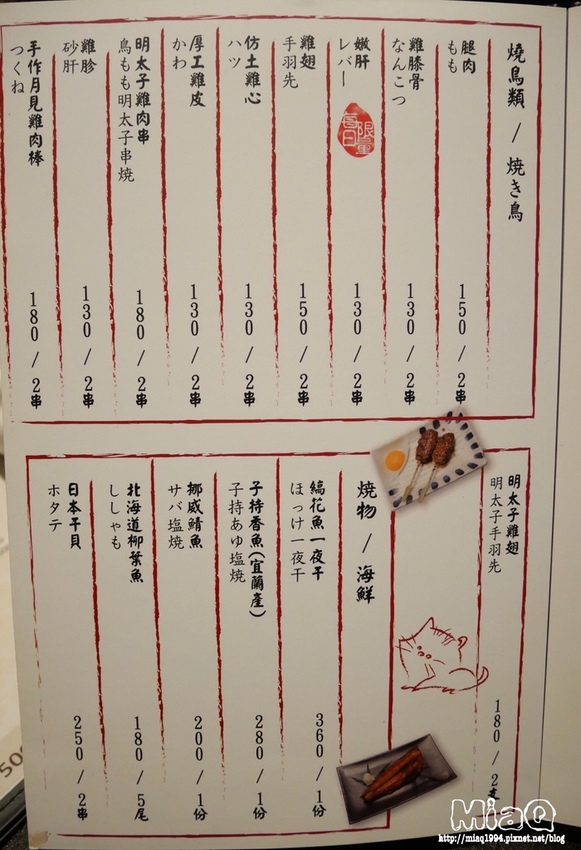 燒鳥類 / 焼き鳥
腿肉
もも
150 / 2串
雞膝骨
なんこつ
130 / 2串
嫩肝
レバー
每日限量
130 / 2串
雞翅
手羽先
150 / 2串
仿土雞心
ハツ
130 / 2串
厚工雞皮
かわ
130 / 2串
明太子雞肉串
鳥もも明太子串焼
180 / 2串
雞胗
砂肝
130 / 2串
手作月見雞肉棒
つくね
180 / 2串
明太子雞翅
明太子手羽先
180 / 2支
焼物 / 海鮮
縞花魚一夜干
ほっけ一夜干
360 / 1份
子持香魚(宜蘭產)
子持あゆ塩焼
280 / 1份
挪威鯖魚
サバ塩焼
200 / 1份
北海道柳葉魚
ししゃも
180 / 5尾
日本干貝
ホタテ
250 / 2串
MiaQ
http://miaq1994.pixnet.net/blog